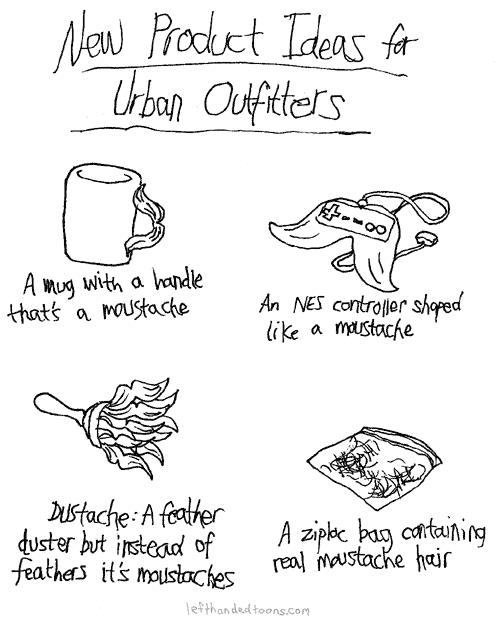 New Product Ideas for
Urban Outfitters
A mug with a handle
that's a moustache
An NES controller shaped
like a moustache
Dustache: A feather
duster but instead of
feathers it's moustaches
A ziploc bag containing
real moustache hair
lefthandedtoons.com